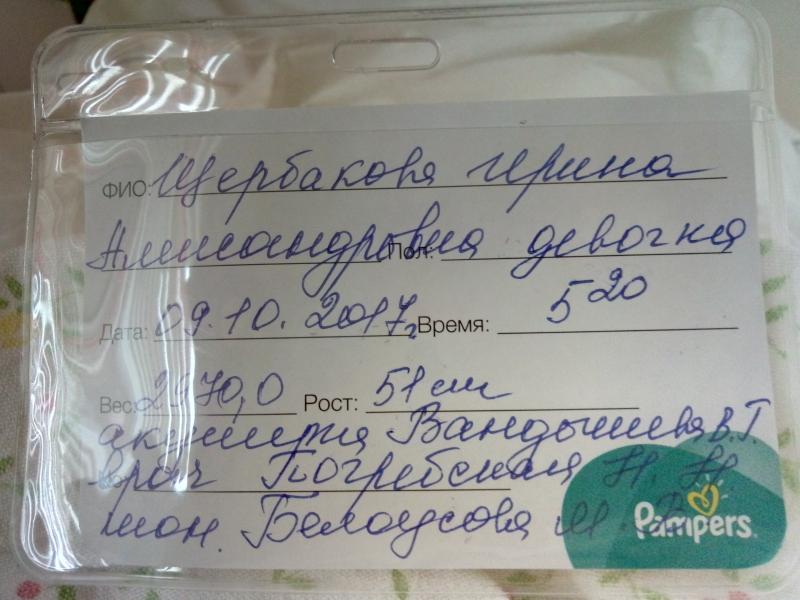 ФИО: Щербакова Ирина
Александровна Пол: девочка
Дата: 09.10.2017г Время: 5 20
Вес: 2970,0 Рост: 51 см
акушерка Вандышева В.Г.
врач Погребская Н. Н
мон. Белоусова М. В
Pampers.